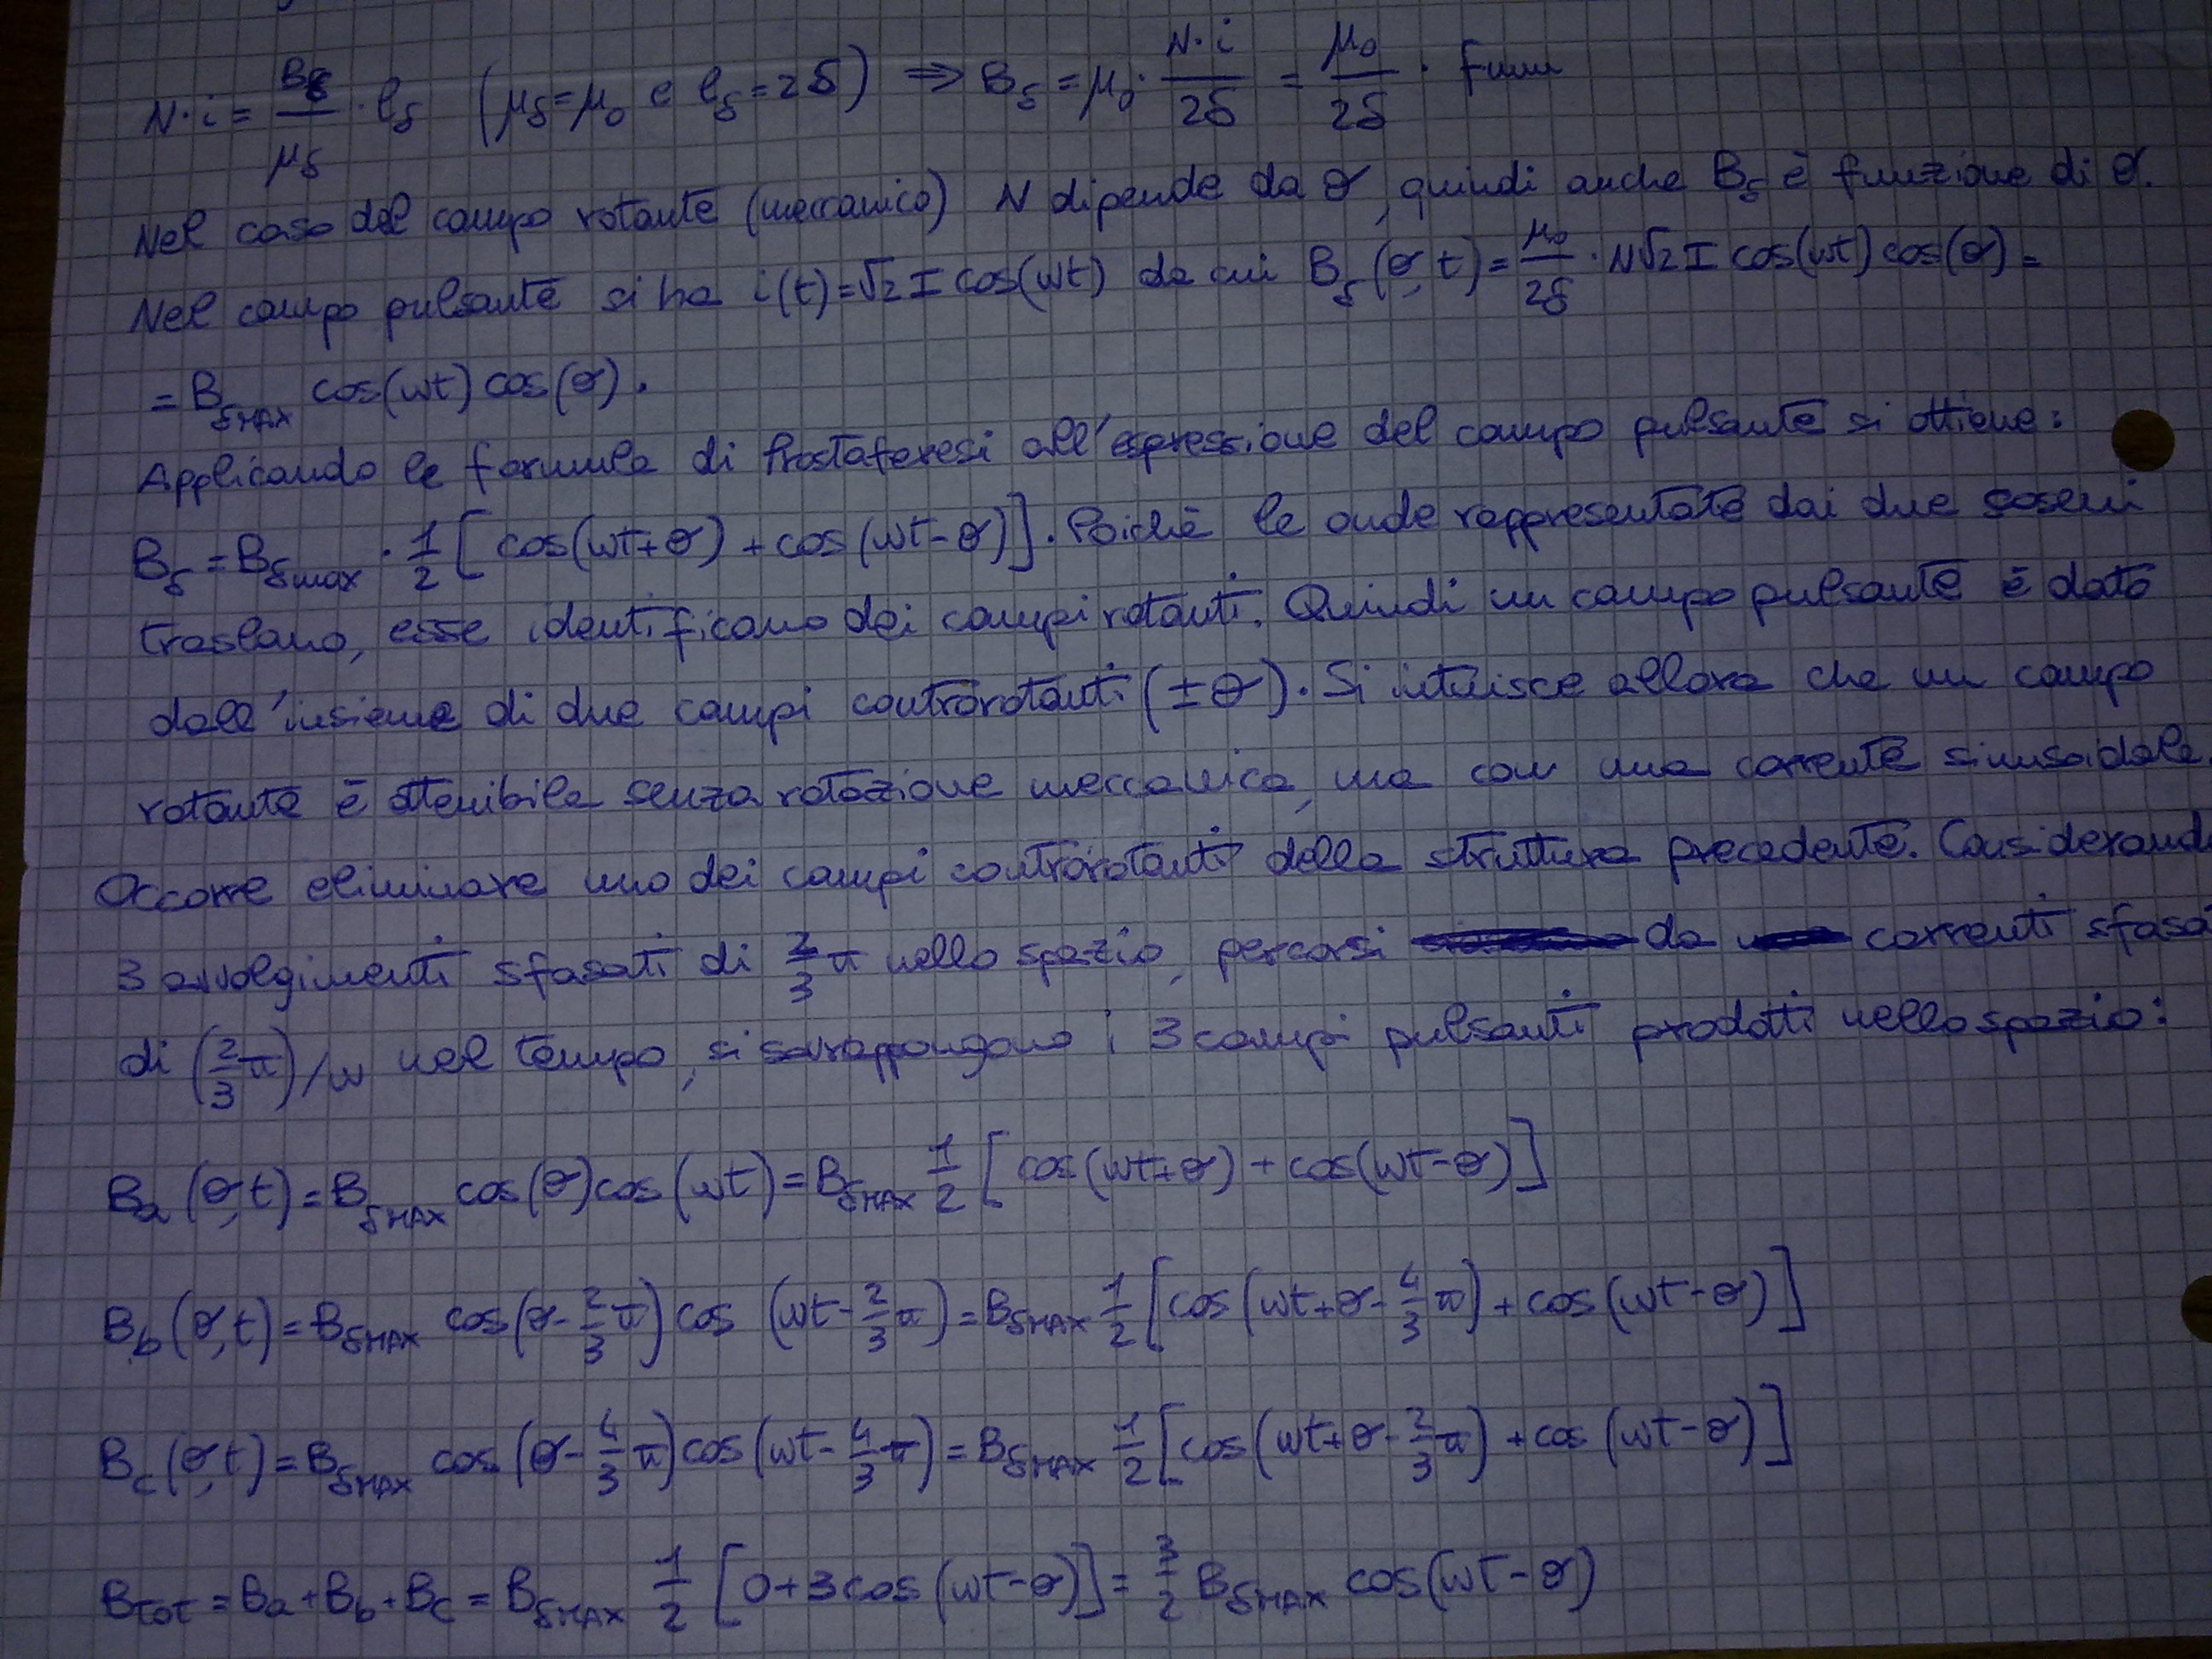 N·i = Bδ/μδ · lδ (μδ=μ0 e lδ=2δ) ⇒ Bδ = μ0 · N·i/2δ = μ0/2δ · fmm
Nel caso del campo rotante (meccanico) N dipende da θ, quindi anche Bδ è funzione di θ.
Nel campo pulsante si ha i(t)=√2 I cos(ωt) da cui Bδ(θ,t)= μ0/2δ · N√2 I cos(ωt) cos(θ) =
= BδMAX cos(ωt) cos(θ).
Applicando le formule di Prostaferesi all'espressione del campo pulsante si ottiene:
Bδ = Bδmax · 1/2 [cos(ωt+θ) + cos(ωt-θ)]. Poichè le onde rappresentate dai due coseni
traslano, esse identificano dei campi rotanti. Quindi un campo pulsante è dato
dall'insieme di due campi controrotanti (±θ). Si intuisce allora che un campo
rotante è ottenibile senza rotazione meccanica, ma con una corrente sinusoidale.
Occorre eliminare uno dei campi controrotanti della struttura precedente. Considerand
3 avvolgimenti sfasati di 2/3 π nello spazio, percorsi da correnti sfasa
di (2/3 π)/ω nel tempo, si sovrappongono i 3 campi pulsanti prodotti nello spazio:
Ba(θ,t) = BδMAX cos(θ) cos(ωt) = BδMAX 1/2 [cos(ωt+θ) + cos(ωt-θ)]
Bb(θ,t) = BδMAX cos(θ - 2/3 π) cos(ωt - 2/3 π) = BδMAX 1/2 [cos(ωt+θ - 4/3 π) + cos(ωt-θ)]
Bc(θ,t) = BδMAX cos(θ - 4/3 π) cos(ωt - 4/3 π) = BδMAX 1/2 [cos(ωt+θ - 2/3 π) + cos(ωt-θ)]
Btot = Ba + Bb + Bc = BδMAX 1/2 [0 + 3cos(ωt-θ)] = 3/2 BδMAX cos(ωt-θ)